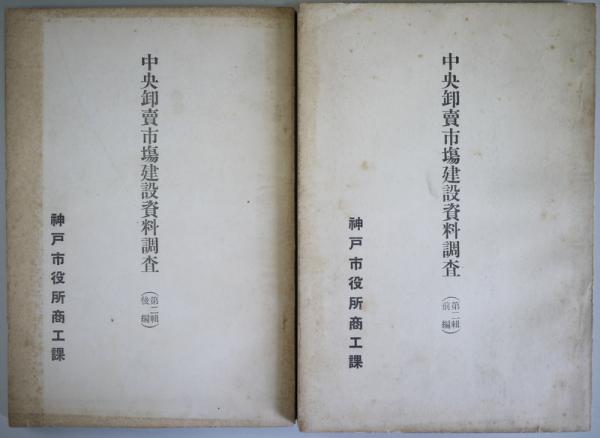 中央卸賣市塲建設資料調査
(第二輯
後編)
神戸市役所商工課
中央卸賣市塲建設資料調査
(第二輯
前編)
神戸市役所商工課